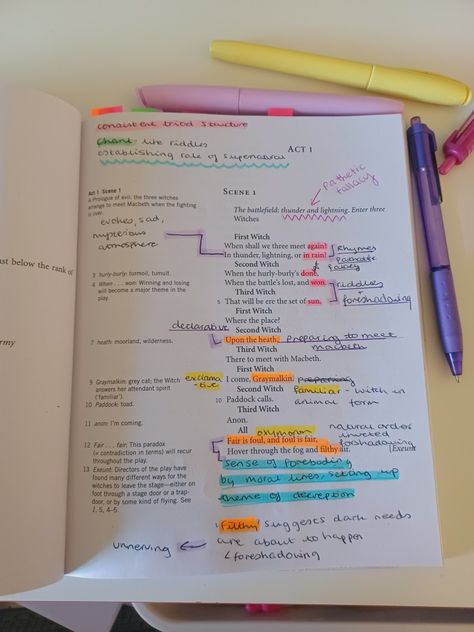 consistent triad structure
Chant like riddles
establishing role of supernatural
ACT 1
SCENE 1
pathetic
fallacy
Act 1 Scene 1
A Prologue of evil; the three witches
arrange to meet Macbeth when the fighting
is over.
evokes, sad,
mysterious
atmosphere
The battlefield: thunder and lightning. Enter three
Witches
First Witch
When shall we three meet again?
In thunder, lightning, or in rain?
Rhymes
Pathetic
fallacy
Second Witch
3 hurly-burly: turmoil, tumult.
When the hurly-burly's done,
4 When . . . won: Winning and losing
will become a major theme in the
play.
When the battle's lost, and won.
riddles
+
foreshadowing
Third Witch
5 That will be ere the set of sun.
First Witch
Where the place?
declarative
Second Witch
7 heath: moorland, wilderness.
Upon the heath. preparing to meet
Macbeth
Third Witch
There to meet with Macbeth.
First Witch
9 Graymalkin: grey cat; the Witch
answers her attendant spirit
('familiar').
exclama
-tive
I come, Graymalkin preparing
Second Witch
familiar - witch in
animal form
10 Paddock: toad.
10 Paddock calls.
Third Witch
11 anon: I'm coming.
Anon.
All
oxymoron
natural order
inverted
foreshadowing
12 Fair . . . fair: This paradox
(= contradiction in terms) will recur
throughout the play.
Fair is foul, and foul is fair,
Hover through the fog and filthy air.
(Exeunt
13 Exeunt: Directors of the play have
found many different ways for the
witches to leave the stage—either on
foot through a stage door or a trap-
door, or by some kind of flying. See
1, 5, 4–5.
sense of foreboding
by moral lines, setting up
theme of deception
'Filthy' suggests dark needs
are about to happen
foreshadowing
unnerving
ust below the rank of
rmy